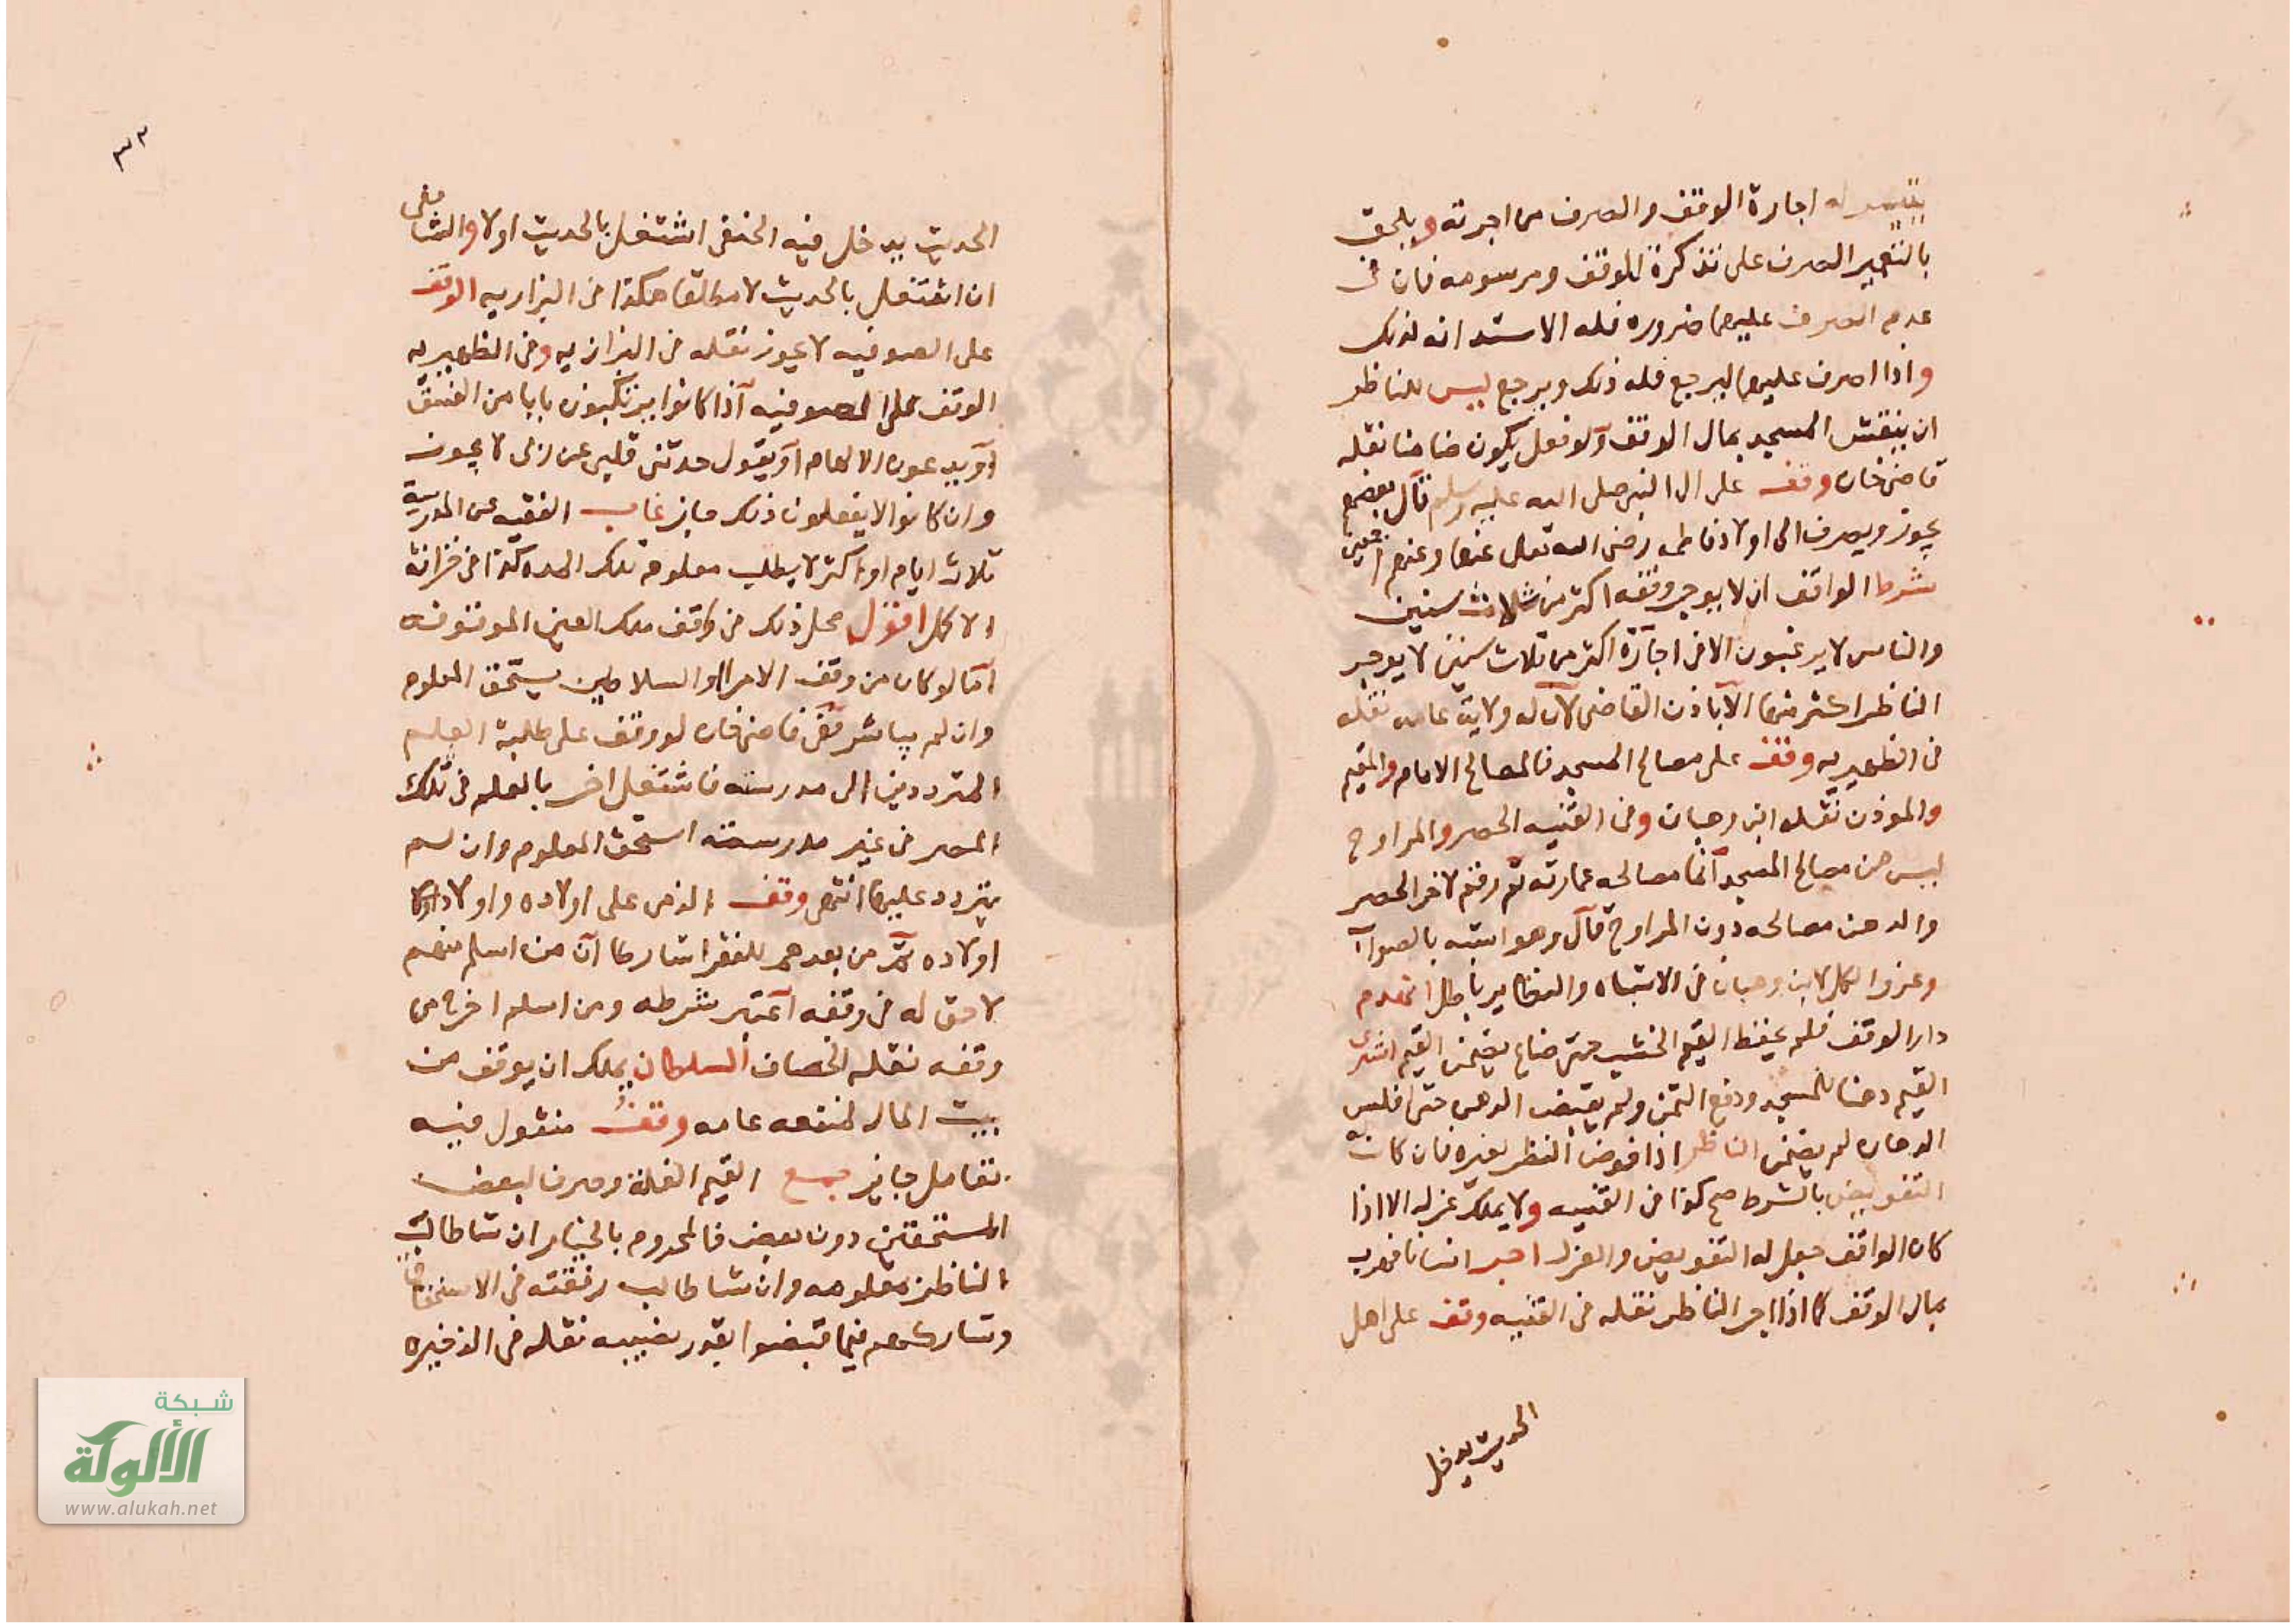 يتيسر له اجارة الوقف والصرف من اجرته ويلحق
بالتعمير الصرف على تذكرة للوقف ومرسومه فان في
عدم الصرف عليهما ضروره فله الاستدانه لذلك
واذا اصرف عليهما ليرجع فله ذلك ويرجع ليس للناظر
ان ينقش المسجد بمال الوقف ولو فعل يكون ضامنا نقله
قاضى خان وقف على ال النبى صلى الله عليه وسلم قال بعضهم
يجوز ويصرف الى اولاد فاطمه رضى الله تعالى عنها وعنهم اجمعين
شرط الواقف ان لا يوجر وقفه اكثر من ثلاث سنين
والناس لا يرغبون الا فى اجارة اكثر من ثلاث سنين لا يوجر
الناظر اكثر منها الا باذن القاضى لان له ولاية عامه نقله
فى الظهيريه وقف على مصالح المسجد فالمصالح الامام والقيم
والموذن نقله ابن وهبان وفى القنيه الحصر والمراوح
ليس من مصالح المسجد انما مصالحه عمارته ثم رقم لاخر الحصر
والدهن مصالحه دون المراوح قال وهو اشبه بالصواب
وعزوا الكل لابن وهبان فى الاشباه والنظاير باطل انهدم
دار الوقف فلم يحفظ القيم الخشب حتى ضاع يضمن القيم اشترى
القيم دهنا للمسجد ودفع الثمن ولم يقبض الدهن حتى افلس
الدهان لم يضمن الناظر اذا فوض النظر لغيره فان كان له
التفويض بالشرط صح كذا فى القنيه ولا يملك عزله الا اذا
كان الواقف جعل له التفويض والعزل اجر انسانا فهرب
بمال الوقف كما اذا اجر الناظر نقله فى القنيه وقف على اهل
الحديث يدخل
٣٢
الحديث يدخل فيه الحنفى اشتغل بالحديث اولا والشافعى
ان اشتغل بالحديث لا مطلقا هكذا فى البزازيه الوقف
على الصوفيه لا يجوز نقله فى البزازيه وفى الظهيريه
الوقف على الصوفيه اذا كانوا يرتكبون بابا من الفسق
او يدعون الالهام او يقول حدثنى قلبى عن ربى لا يجوز
وان كانوا لا يفعلون ذلك جايز غاب الفقيه عن المدرسة
ثلاث ايام او اكثر لا يطلب معلومه تلك المده كذا فى خزانة
الاكمل اقول محل ذلك فى واقف ملك العين الموقوفه
اما لو كان من وقف الامرا والسلاطين يستحق المعلوم
وان لم يباشر قاضى خان لو وقف على طلبة العلم
المترددين الى مدرسته فاشتغل اخر بالعلم فى تلك
المصر فى غير مدرسته استحق المعلوم وان لم
يتردد عليها انتهى وقف الذمى على اولاده واولاد
اولاده ثم من بعدهم للفقرا شارطا ان من اسلم منهم
لا حق له فى وقفه اعتبر شرطه ومن اسلم اخرج من
وقفه نقله الخصاف السلطان يملك ان يوقف من
بيت المال لمنفعه عامه وقف منقول فيه
تعامل جايز جمع القيم الغلة وصرف لبعض
المستحقين دون بعض فالمحروم بالخيار ان شا طالب
الناظر بمعلومه وان شا طالب رفقته فى الاستحقاق
وشاركهم فيما قبضوا بقدر نصيبه نقله فى الذخيره
شبكة
الألوكة
www.alukah.net